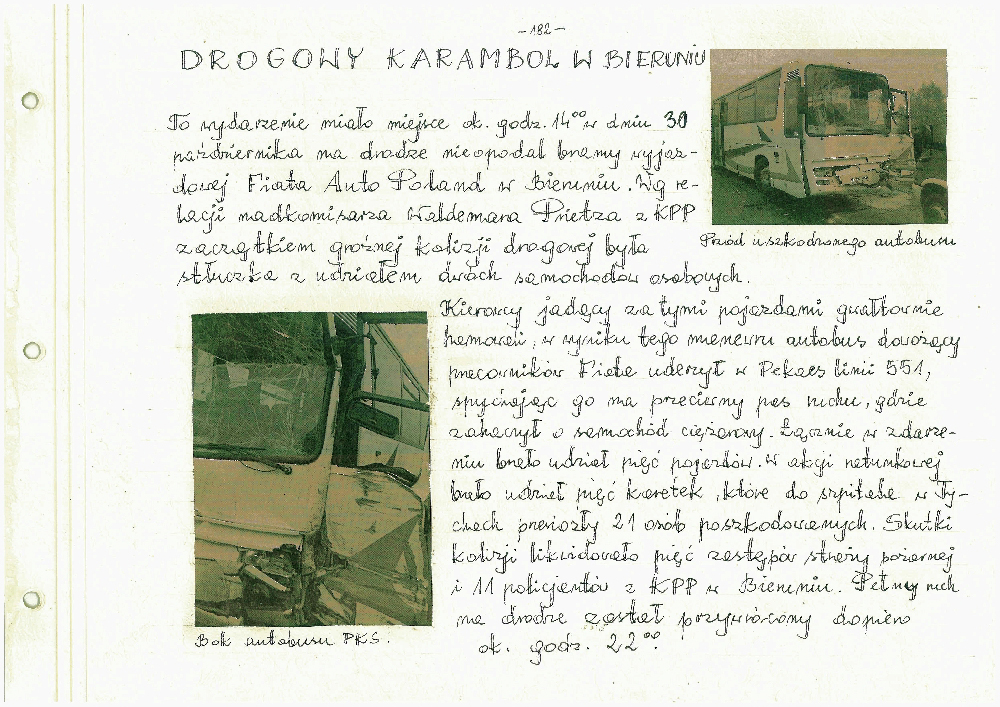 - 182 -
DROGOWY KARAMBOL W BIERUNIU
To wydarzenie miało miejsce ok. godz. 14⁰⁰ w dniu 30
października na drodze nieopodal bramy wyjaz-
dowej Fiata Auto Poland w Bieruniu. Wg re-
lacji nadkomisarza Waldemara Pietrza z KPP
zaczątkiem groźnej kolizji drogowej była
stłuczka z udziałem dwóch samochodów osobowych.
Przód uszkodzonego autobusu
Kierowcy jadący za tymi pojazdami gwałtownie
hamowali, w wyniku tego manewru autobus dowożący
pracowników Fiata uderzył w Pekaes linii 551,
spychając go na przeciwny pas ruchu, gdzie
zahaczył o samochód ciężarowy. Łącznie w zdarze-
niu brało udział pięć pojazdów. W akcji ratunkowej
brało udział pięć karetek, które do szpitala w Ty-
chach przewiozły 21 osób poszkodowanych. Skutki
kolizji likwidowało pięć zastępów straży pożarnej
i 11 policjantów z KPP w Bieruniu. Pełny ruch
na drodze został przywrócony dopiero
ok. godz. 22⁰⁰.
Bok autobusu PKS.